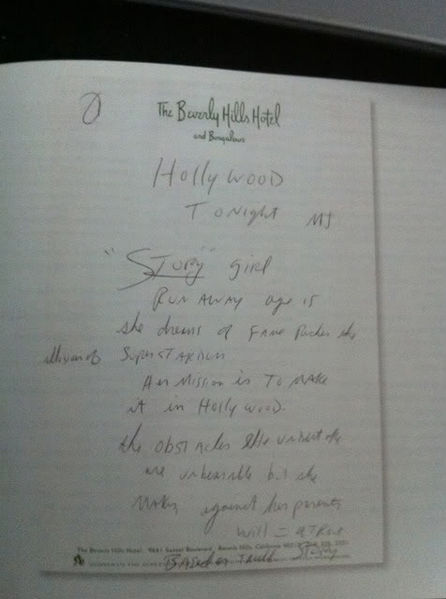 The Beverly Hills Hotel
and Bungalows
Hollywood
Tonight MJ
"Story" girl
Run away age 15
she dreams of Fame the
illusion of Superstardom
Her Mission is To Make
it in Hollywood.
the obstacles she
are unbearable but she
Makes against her parents
will = a True
The Beverly Hills Hotel 9641 Sunset Boulevard, Beverly Hills, California
Based on Truth Story